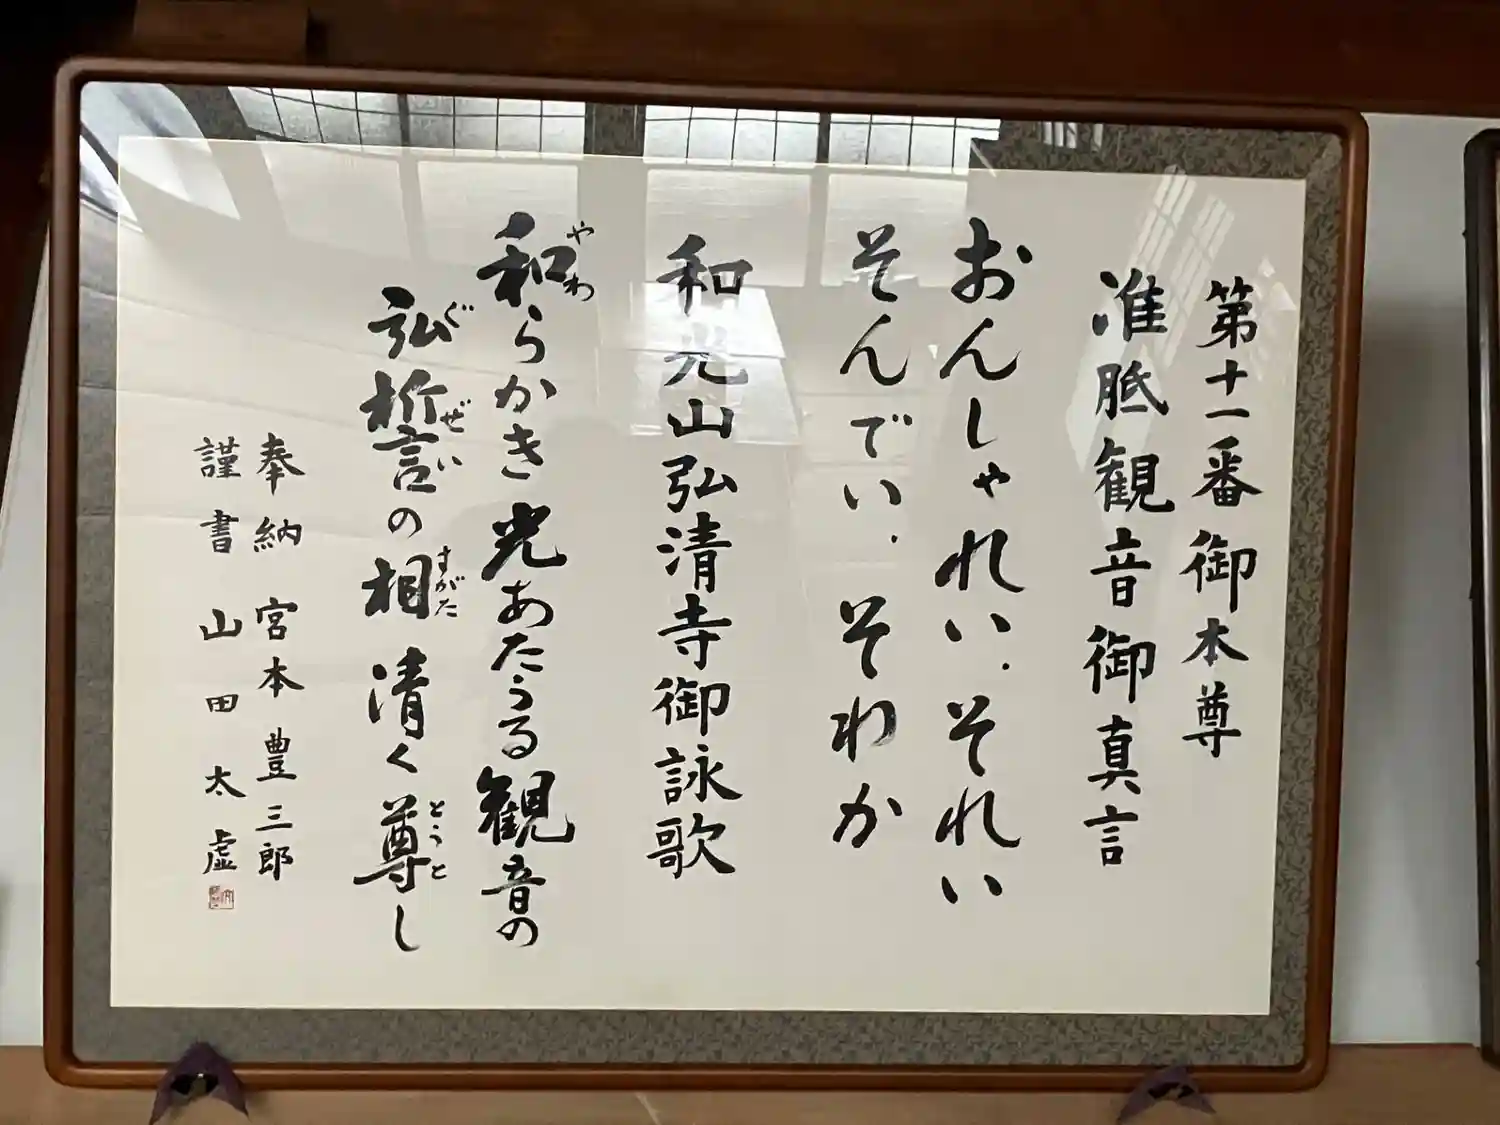 第十一番御本尊
准胝観音御真言
おんしゃれい.それい
そんでい.そわか
和光山弘清寺御詠歌
和らかき光あたうる観音の
やわ
弘誓の相清く尊し
ぐぜい
すがた
とうと
奉納 宮本豊三郎
謹書 山田太虚